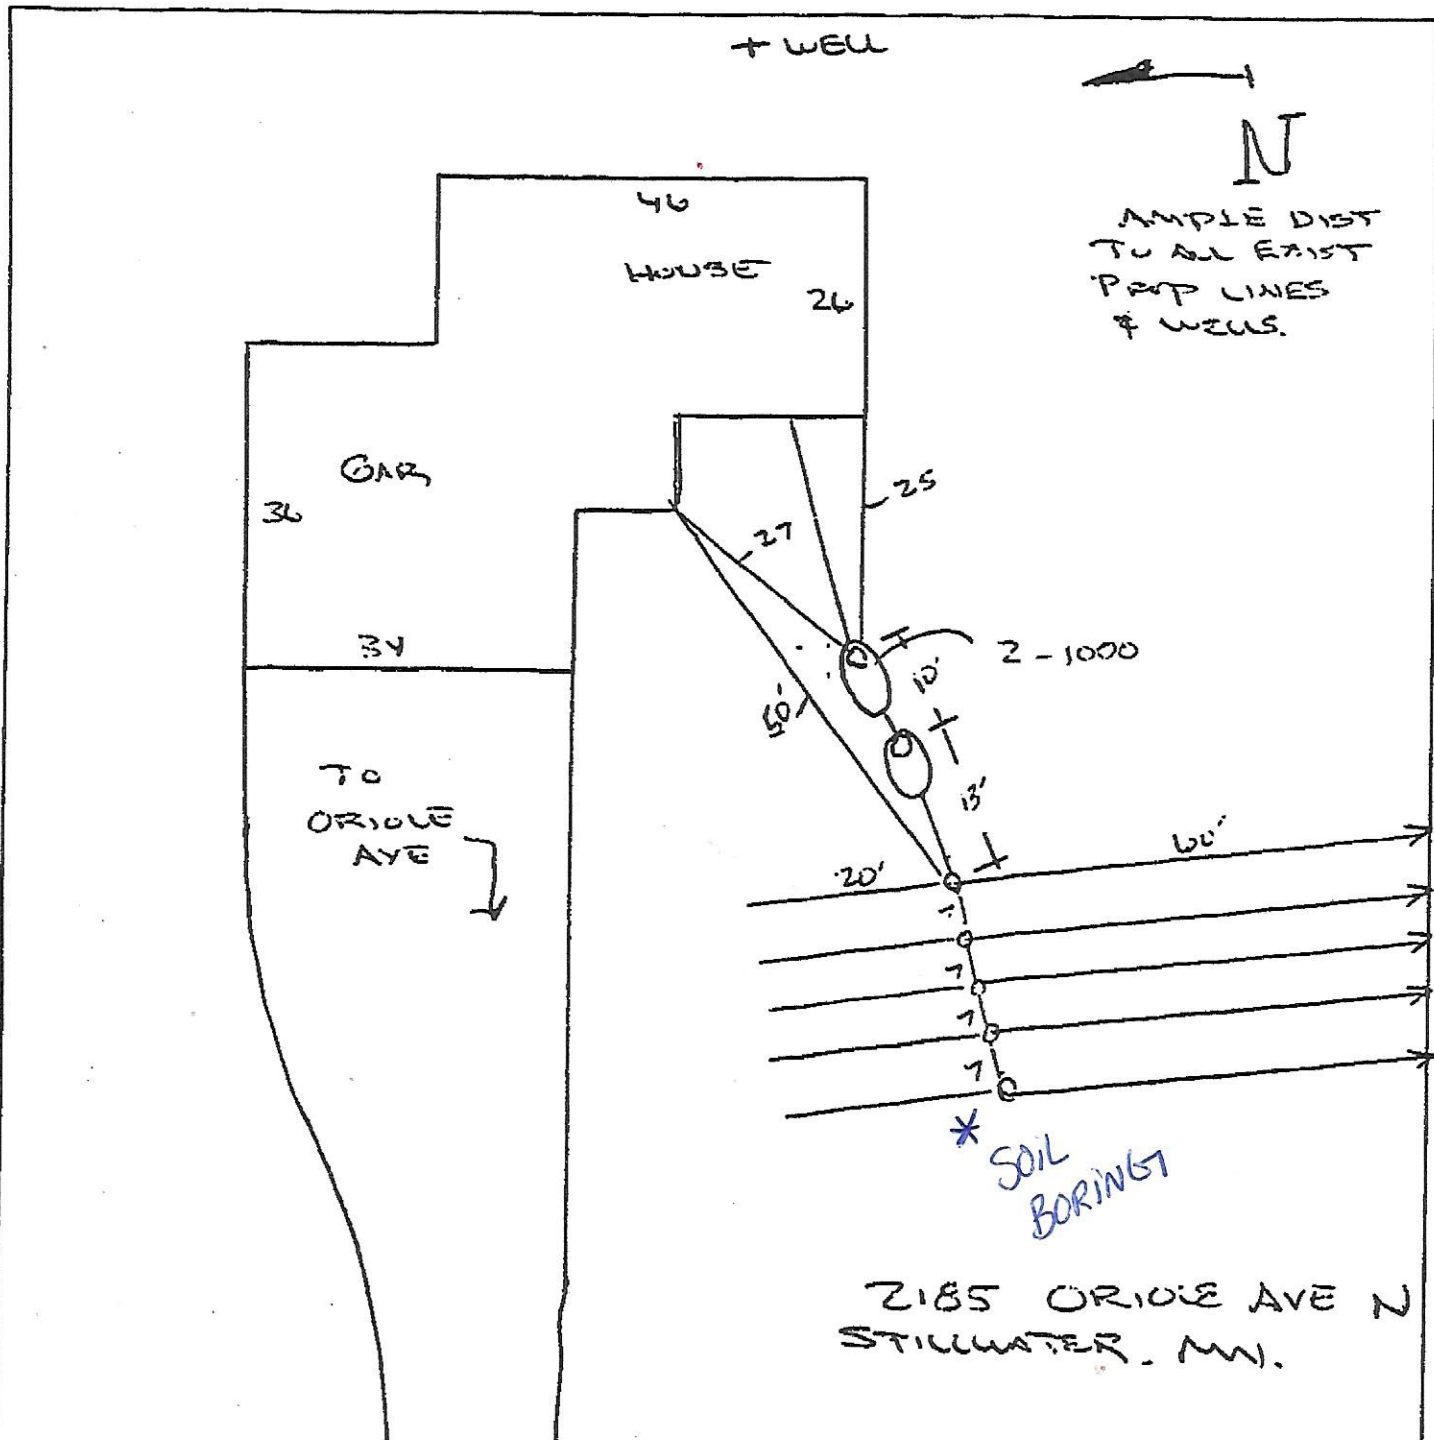 + WELL
N
AMPLE DIST
TO ALL EXIST
PROP LINES
& WELLS.
46
HOUSE
26
GAR
36
34
25
27
2-1000
10'
50'
13'
TO
ORIOLE
AVE
20'
60'
7
7
7
7
* SOIL
BORINGS
2185 ORIOLE AVE N
STILLWATER. MN.